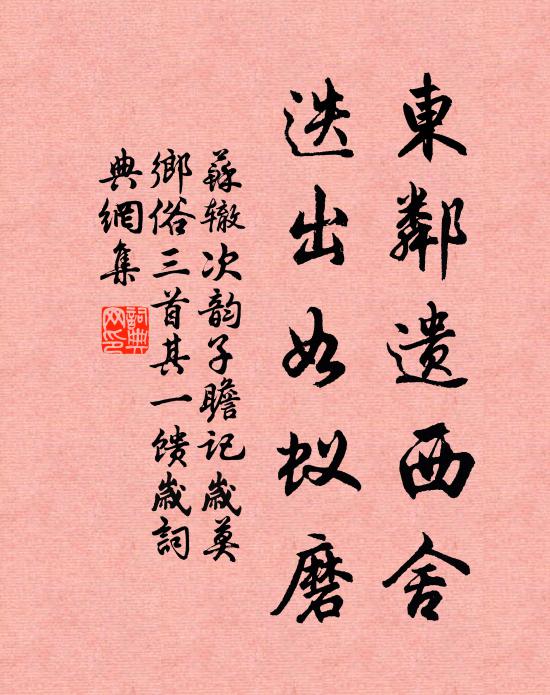 東鄰遺西舍
迭出如蚁磨
蘇辙次韵子瞻记歲莫
鄉俗三首其一馈歲詞
典網集
詞典網印